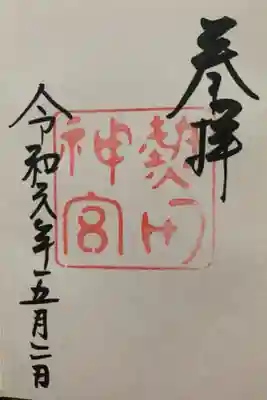 奉拝
熱田
神宮
令和元年五月二日